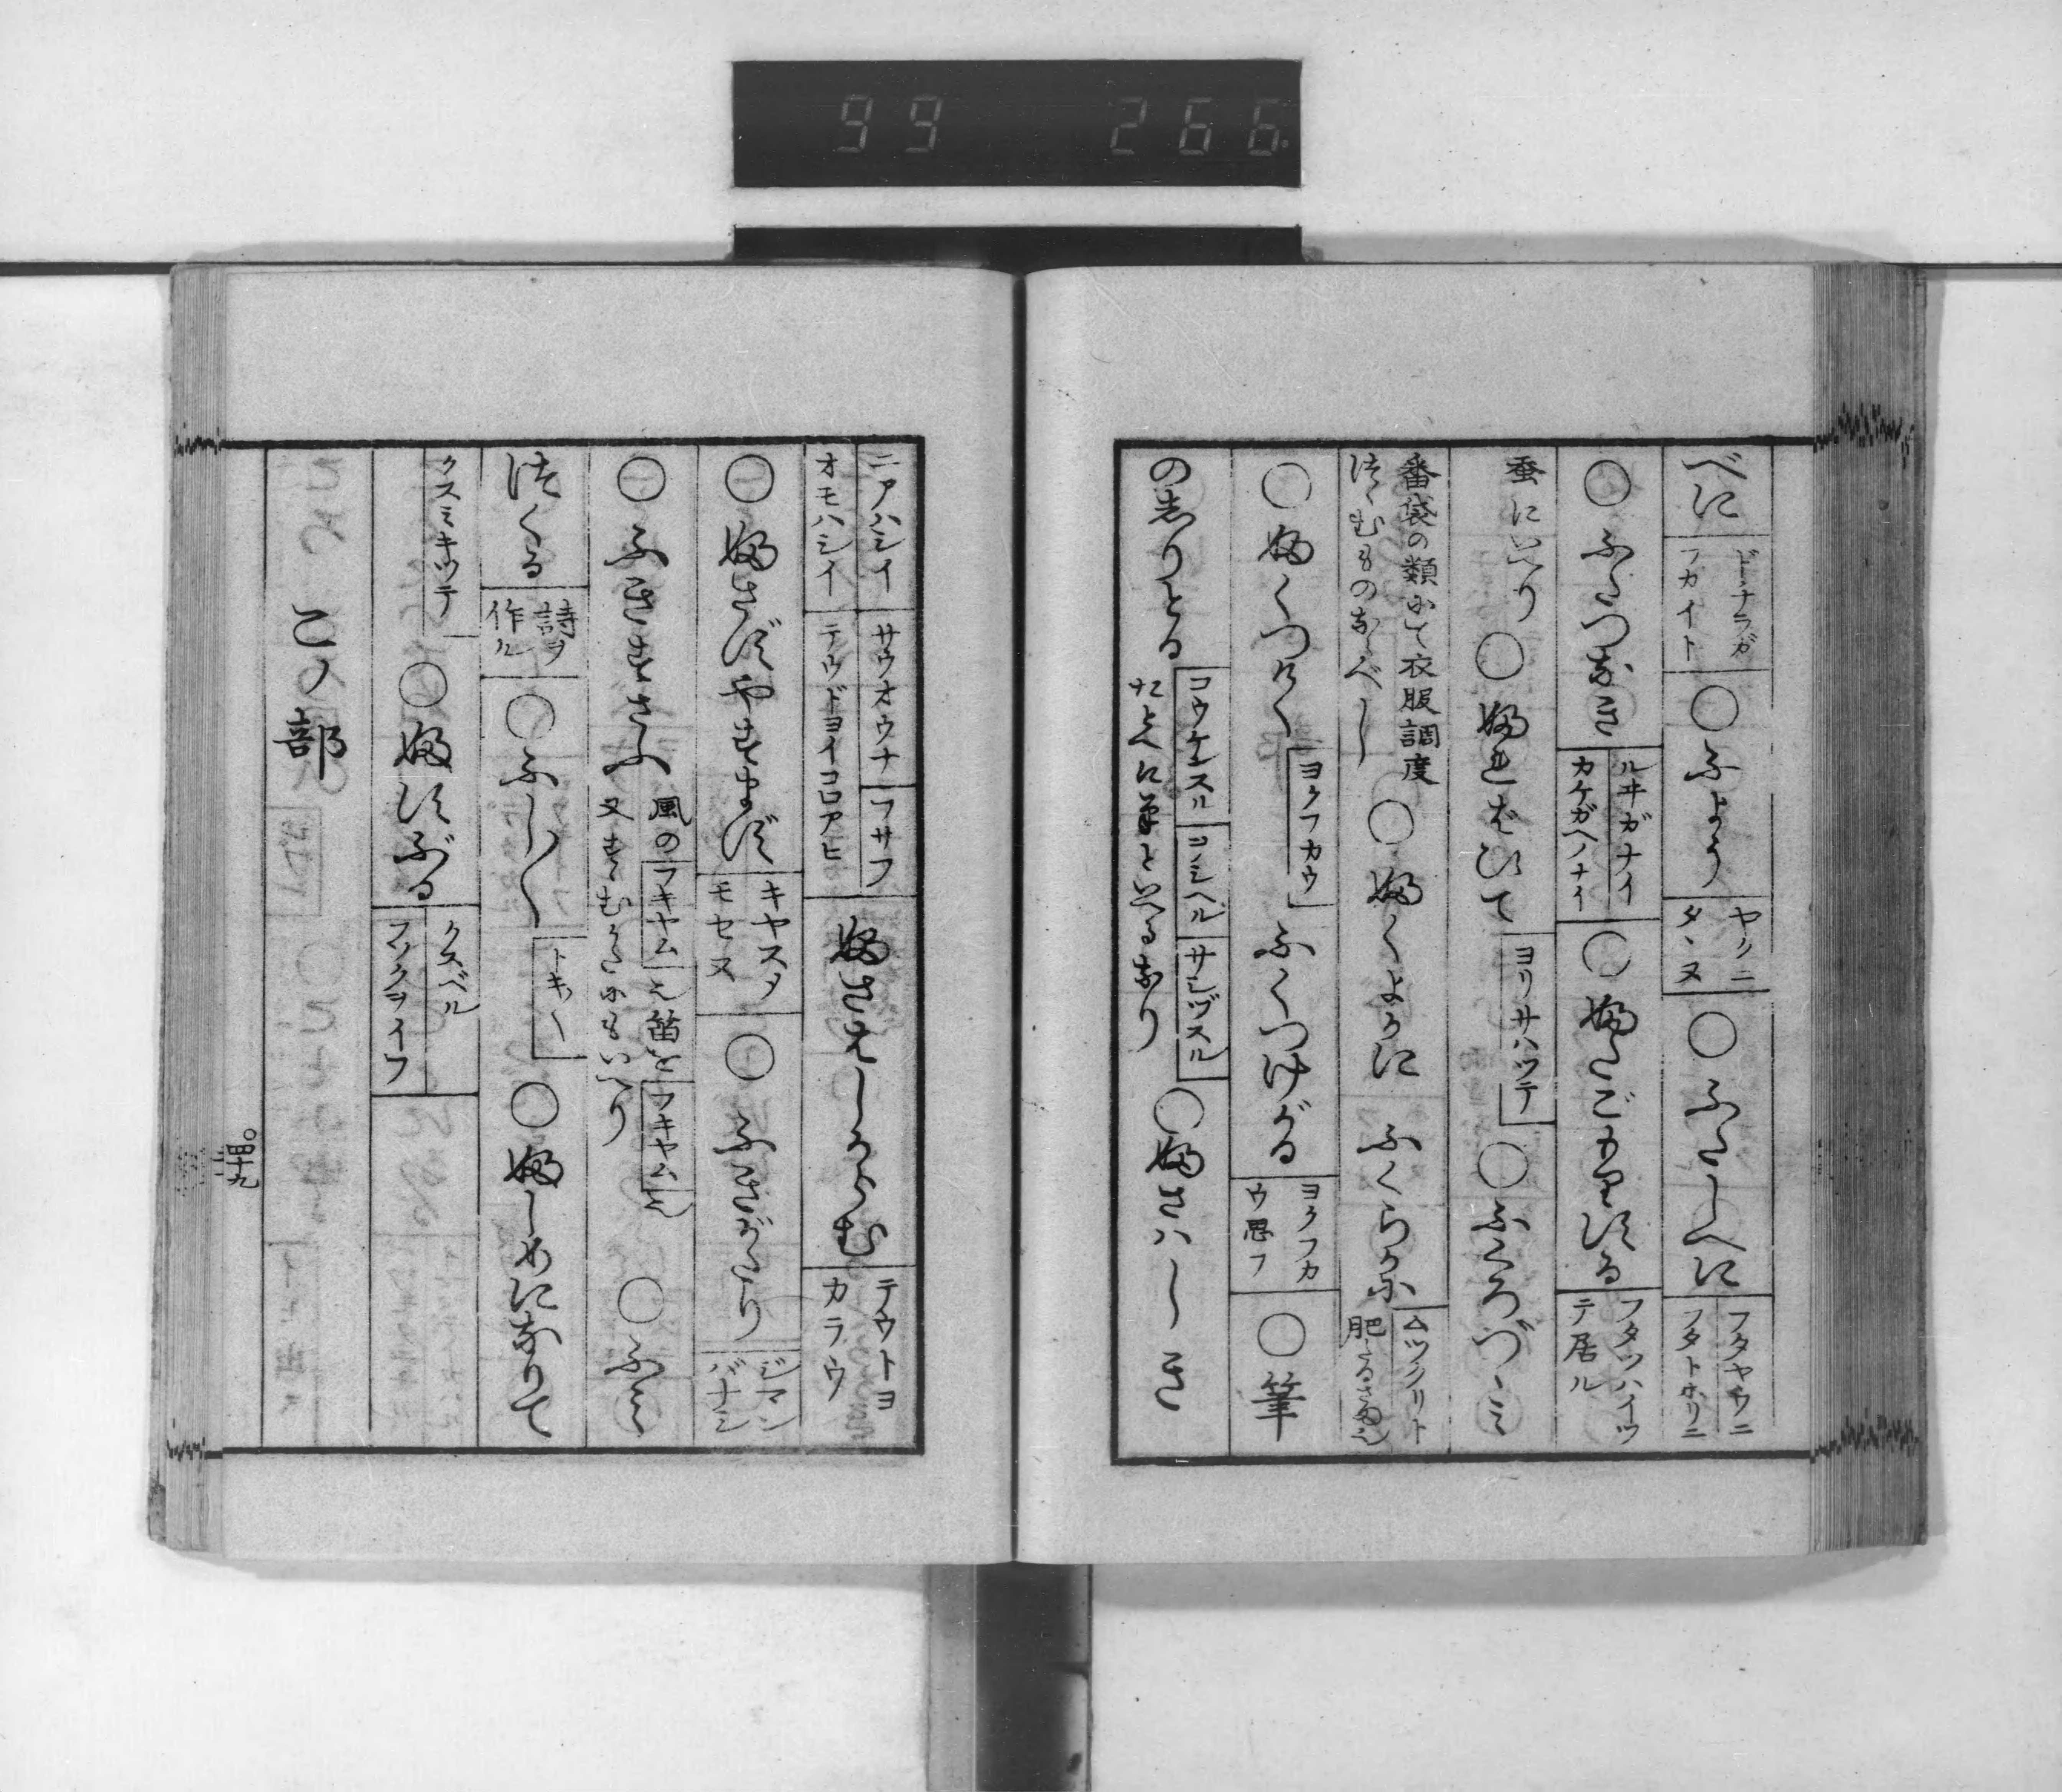 99 266
べに ドチラガフカイト ○ふよう ヤクニタヽヌ ○ふたしへに フタヤウニフタトホリニ
○ふたつなき ルヰガナイカケガヘノナイ ○ふたごもりせる フタツハイツテ居ル
蚕にいへり ○ふればひて ヨリサハツテ ○ふくろづゝミ
番袋の類にて衣服調度つゝむものなるべし ○ふくよかに ふくらかに ムツクリト肥たるさま也
○ふくつけく ヨクフカウ ふくつけがる ヨクフカウ思フ ○筆
のしりとる コウケンスル コシヘル サシヅスル たとへに筆といへるなり ○ふさハしき
ニアハシイ オモハシイ サウオウナ テウドヨイコロアヒ フサフ ふさはしからむ テウトヨカラウ
○ふさずやすまず キヤスメモセヌ ○ふきがたり ジマンバナシ
○ふきすさふ 風のフキヤム也 笛をフキヤム也 又すゝむかたにもいへり ○ふミ
つくる 詩ヲ作ル ○ふし〳〵 トキ〳〵 ○ふしめになりて
クスミキツテ ○ふすぶる クスベル フソクヲイフ
こノ部
四十九